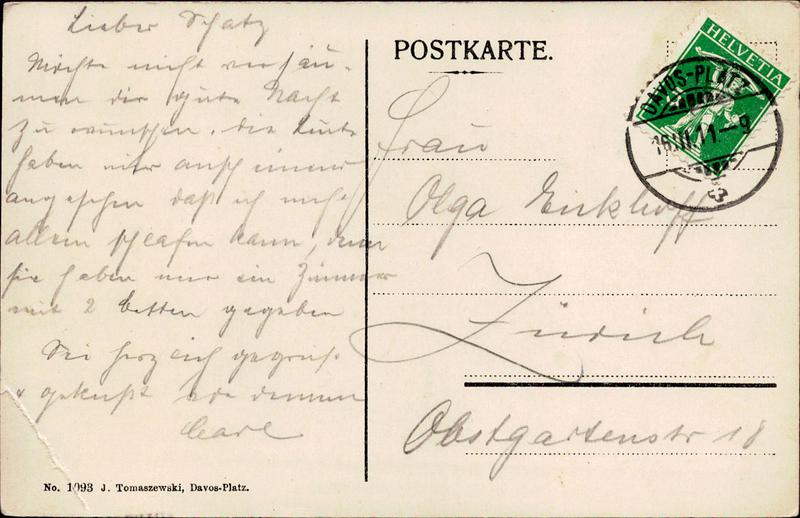 Lieber Schatz
Möchte nicht versäu-
men dir gute Nacht
zu wünschen. die Leute
haben mir
angesehen daß ich nicht
allein schlafen kann, denn
sie haben mir ein Zimmer
mit 2 betten gegeben
Sei herzlich gegrüßt
& geküßt von deinem
Carl
POSTKARTE.
HELVETIA
DAVOS-PLATZ
16.II.11-9
Frau
Olga Eickhoff
Zürich
Obstgartenstr 18
No. 1093 J. Tomaszewski, Davos-Platz.